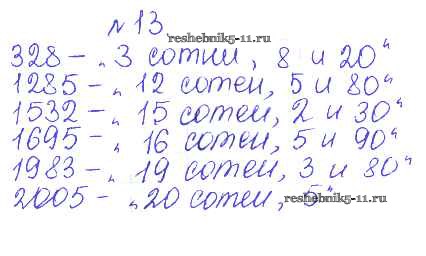 № 13
reshebnik5-11.ru
328 – „3 сотни, 8 и 20“
1285 – „12 сотен, 5 и 80“
1532 – „15 сотен, 2 и 30“
1695 – „16 сотен, 5 и 90“
1983 – „19 сотен, 3 и 80“
2005 – „20 сотен, 5“
reshebnik5-11.ru